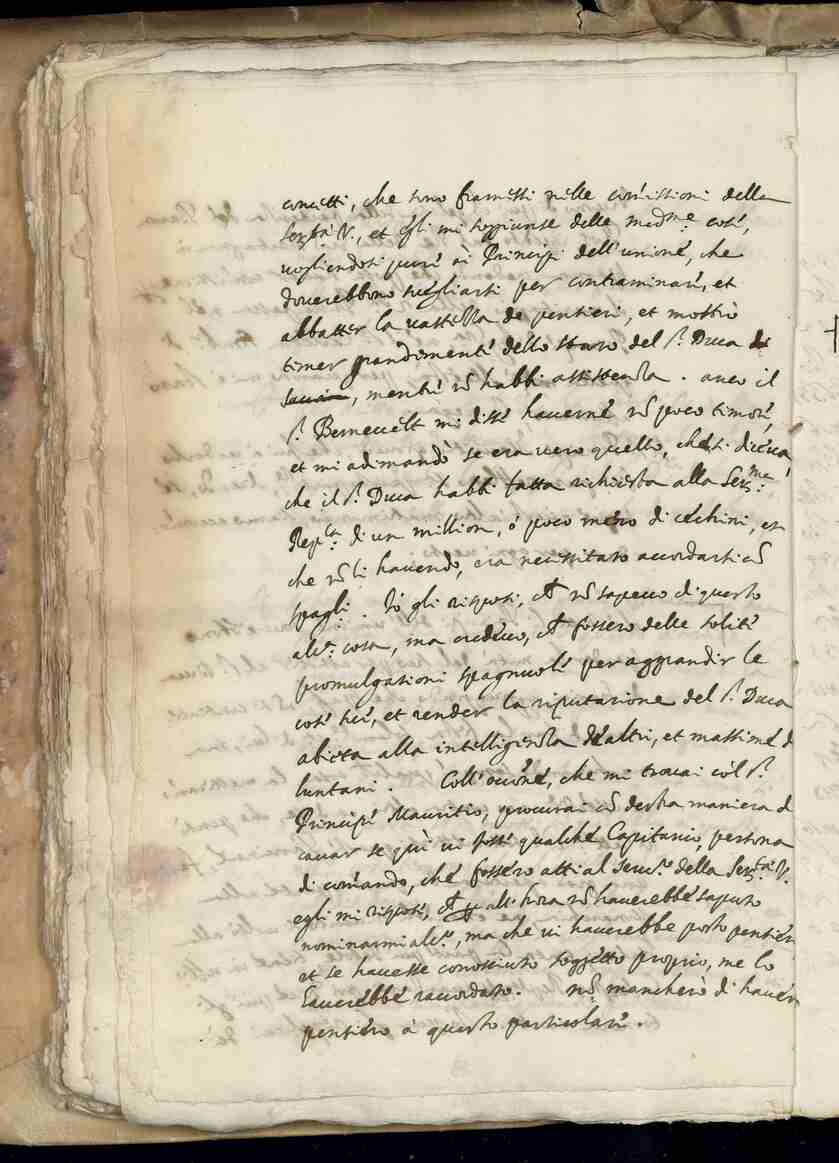 concetti, che sono framessi nelle com̃issioni della
Ser.tà V., et egli mi soggiunse delle med.me cose,
uogliendosi pure ài Principi dell'unione, che
douerebbono suegliarsi per contraminare, et
abbatter la uastezza de pensieri, et mostrò
temer grandemente dello stato del s.r Duca di
Sauoia, mentre nõ habbi assistenza. anco il
s.r Berneuelt mi disse hauerne nõ poco timore,
et mi adimandò se era uero quello, che si diceua,
che il s.r Duca habbi fatta richiesta alla Ser.ma
Rep.ca di un million, ò poco meno di cechini, et
che nõ li hauendo, era necessitato accordarsi cõ
spagli. Io gli risposi, che nõ sapeuo di questo
alc.a cosa, ma credeuo, che fossero delle solite
promulgationi spagnuole per aggrandir le
cose sue, et render la riputatione del s.r Duca
abieta alla intelligenza de altri, et massime d
luntani. Coll'occõne, che mi trouai col s.r
Principe Mauritio, procurai cõ destra maniera d
cauar se quì ui fosse qualche Capitanio, persona
di com̃ando, che fossero atti al seru.o della Ser.tà V.
egli mi rispose, che per all'hora nõ hauerebbe saputo
nominarmi alc.o, ma che ui hauerebbe posto pensier
et se hauesse conosciuto soggetto proprio, me lo
hauerebbe raccordato. nõ mancherò di hauer
pensiero à questo particolare.